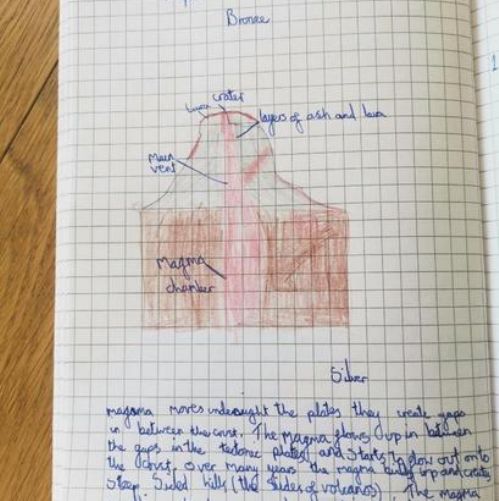 Bronze
crater
lava
layers of ash and lava
main
vent
Magma
chamber
Silver
magama moves underneught the plates they create gaps
in between the crust. The magma flows up in between
the gaps in the tectonic plates and starts to flow out onto
the crust. over many years the magma builds up and creates
steep sided hills (the sides of volcanos). The magma